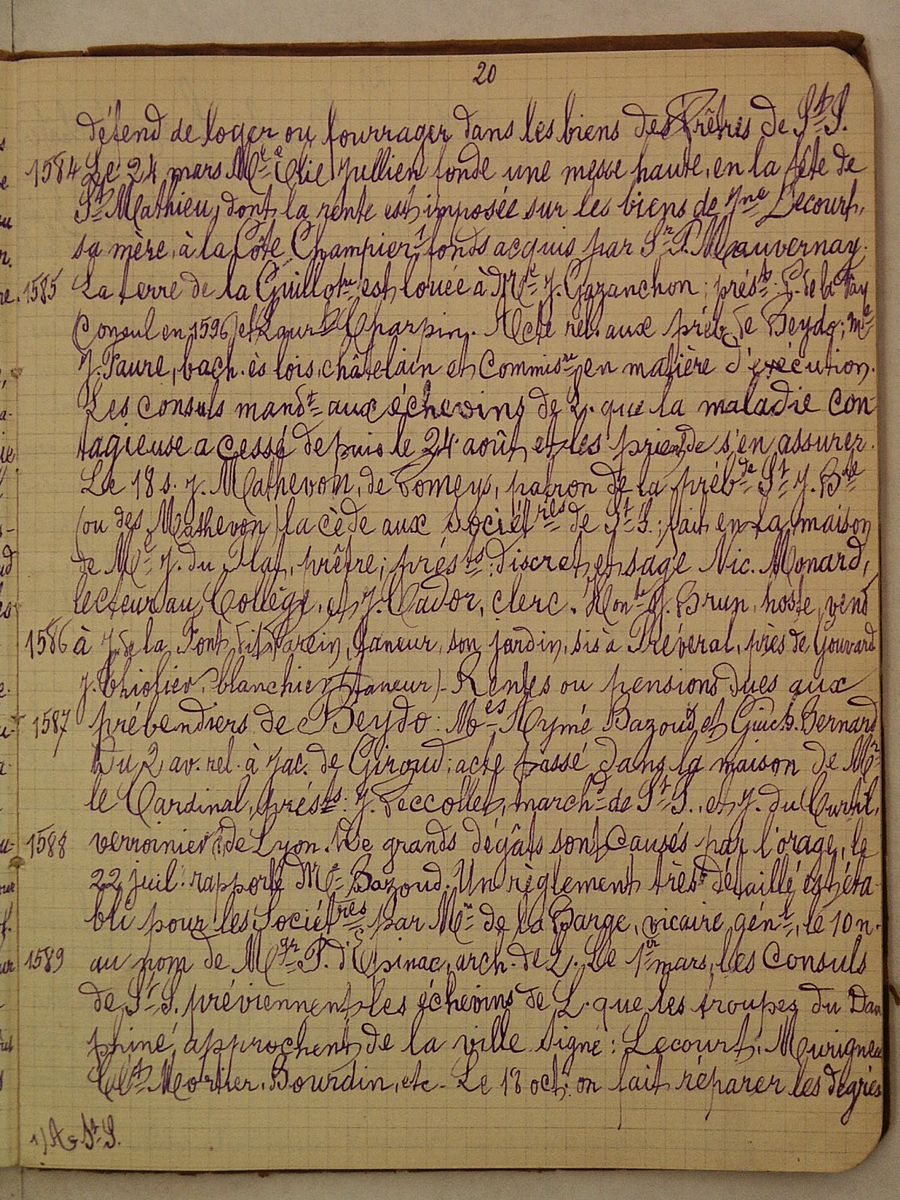 20
défend de loger ou fourrager dans les biens des Prêtres de St S.
1584 Le 24 mars Me Elie Jullien fonde une messe haute, en la fête de
St Mathieu, dont la rente est imposée sur les biens de Lecourt,
sa mère, à la Côte Champier, 1 fonds acquis par Sr P. Mauvernay.
1585 La terre de la Guilloti est louée à Me J. Gazanchon; présts G. de la Fay
(Consul en 1596) et Laur Charpin. Acte rel. aux préb de Beydo; Me
J. Faure, bach. ès lois, châtelain et Commisre en matière d'exécution.
Les consuls mandt aux échevins de L. que la maladie con-
tagieuse a cessé depuis le 24 août et les prient de s'en assurer.
Le 18 s. J. Mathevon, de Pomeys, patron de la prébde St J. Bte
(ou des Mathevon) la cède aux Sociétres de St S.; fait en la maison
de Me J. du Plat, prêtre; présts: discret et sage Nic. Monard,
lecteur au Collège, et J. Cador, clerc. Honte J. Brun, hoste, vend
1586 à J. de la Font dit Marcin, taneur, son jardin, sis à Préveral, près de Gouvard
J. Thiolier, blanchier (taneur) - Rentes ou pensions dues aux
1587 prébendiers de Beydo: Mes Aymé Bazoud et Guich. Bernard
Du 2 av. rel. à Jac. de Giroud; acte passé dans la maison de Mr
le Cardinal, présts: J. Peccollet, marchd de St S. et J. du Curtil,
1588 verroinier (?) de Lyon. De grands dégâts sont causés par l'orage, le
22 juil: rapporte Me Bazoud. Un règlement très détaillé est éta-
bli pour les Sociétres, par Mr de la Barge, vicaire gént, le 10 n.
1589 au nom de Mgr P. d'Epinac, arch. de L. Le 1er mars, les Consuls
de St S. préviennent les échevins de L. que les troupes du Dau
phiné approchent de la ville signé: Lecourt, Murigneu
Clt Mortier, Bourdin, etc. Le 18 oct. on fait réparer les degrés
1) A St S.